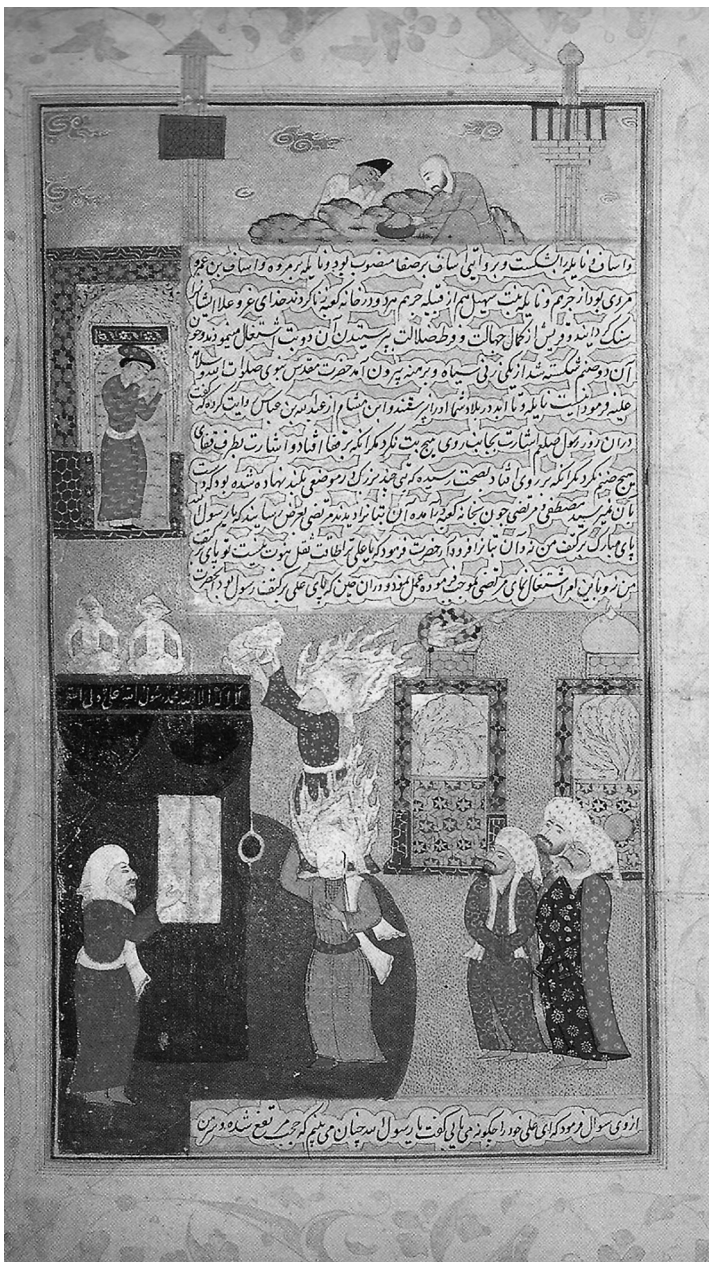 و اساف و نایله را بشکست و بروایتی اساف بر صفا منصوب بود و نایله بر مروه و اساف بن عمرو
مردی بود از جرهم و نایله بنت سهیل هم از قبیله جرهم هر دو در خانه کعبه زنا کردند خدای عز و علا ایشانرا
سنک گردانید و قریش از کمال جهالت و فرط ضلالت بپرستیدن آن دو بت اشتغال مینمودند و چون
آن دو صنم شکسته شد از یکی زنی سیاه و برهنه بیرون آمد حضرت مقدس نبوی صلوات الله و سلامه
علیه فرمود اینست نایله و تا ابد در بلاد شما او را نپرستند و ابن هشام از عبدالله بن عباس روایت کرده که گفت
در ان روز رسول صلعم اشارت بجانب روی هیچ بت نکرد مکر آنکه بر قفا افتاد و اشارت بطرف قفای
هیچ صنم نکرد مکر آنکه بر روی افتاد بصحت رسیده که بتی چند بزرک در موضعی بلند نهاده شده بود که دست
بآن نمیرسید مصطفی و مرتضی چون بخانه کعبه در آمده آن بتانرا دیدند مرتضی بعرض رسانید که یا رسول الله
پای مبارک بر کتف من نه و آن بتانرا فرود آر حضرت فرمود که یا علی ترا طاقت ثقل نبوت نیست تو پای بر کتف
من نه و باین امر اشتغال نمای مرتضی بموجب فرموده عمل نمود و دران حین که پای علی بر کتف رسول بود آنحضرت
لا اله الا الله محمد رسول الله علی ولی الله
از وی سوال فرمود که ای علی خود را چکونه می یابی گفت یا رسول الله چنان می بینم که حجب مرتفع شده و سر من